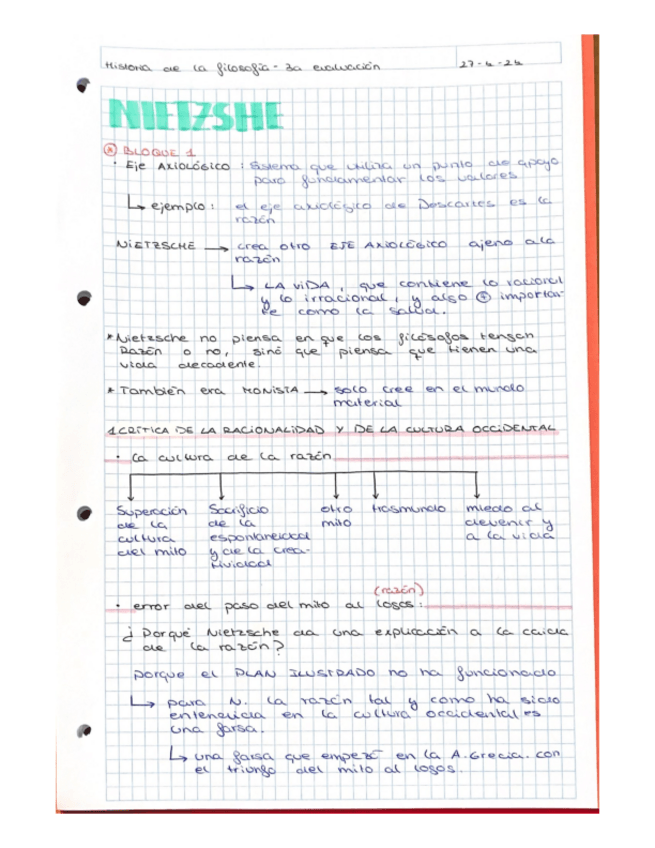 Historia de la filosofía - 3a evaluación
27-4-24
NIETZSHE
BLOQUE 1
· EJE AXIOLÓGICO : Sistema que utiliza un punto de apoyo
para fundamentar los valores
↳ ejemplo : el eje axiológico de Descartes es la
razón
NIETZSCHE → crea otro EJE AXIOLÓGICO ajeno a la
razón
↳ LA VIDA, que contiene lo racional
y lo irracional, y algo ⊕ importan-
te como la salud.
* Nietzsche no piensa en que los filósofos tengan
Razón o no, sinó que piensa que tienen una
vida decadente.
* También era MONISTA → solo cree en el mundo
material
1 CRÍTICA DE LA RACIONALIDAD Y DE LA CULTURA OCCIDENTAL
· La cultura de la razón
Superación
de la
cultura
del mito
Sacrificio
de la
espontaneidad
y de la crea-
tividad
otro
mito
trasmundo
miedo al
devenir y
a la vida
(razón)
· error del paso del mito al logos :
¿ Porqué Nietzsche da una explicación a la caida
de la razón?
porque el PLAN ILUSTRADO no ha funcionado
↳ para N. la razón tal y como ha sido
entendida en la cultura occidental es
una farsa.
↳ una farsa que empezó en la A. Grecia. con
el triunfo del mito al logos.